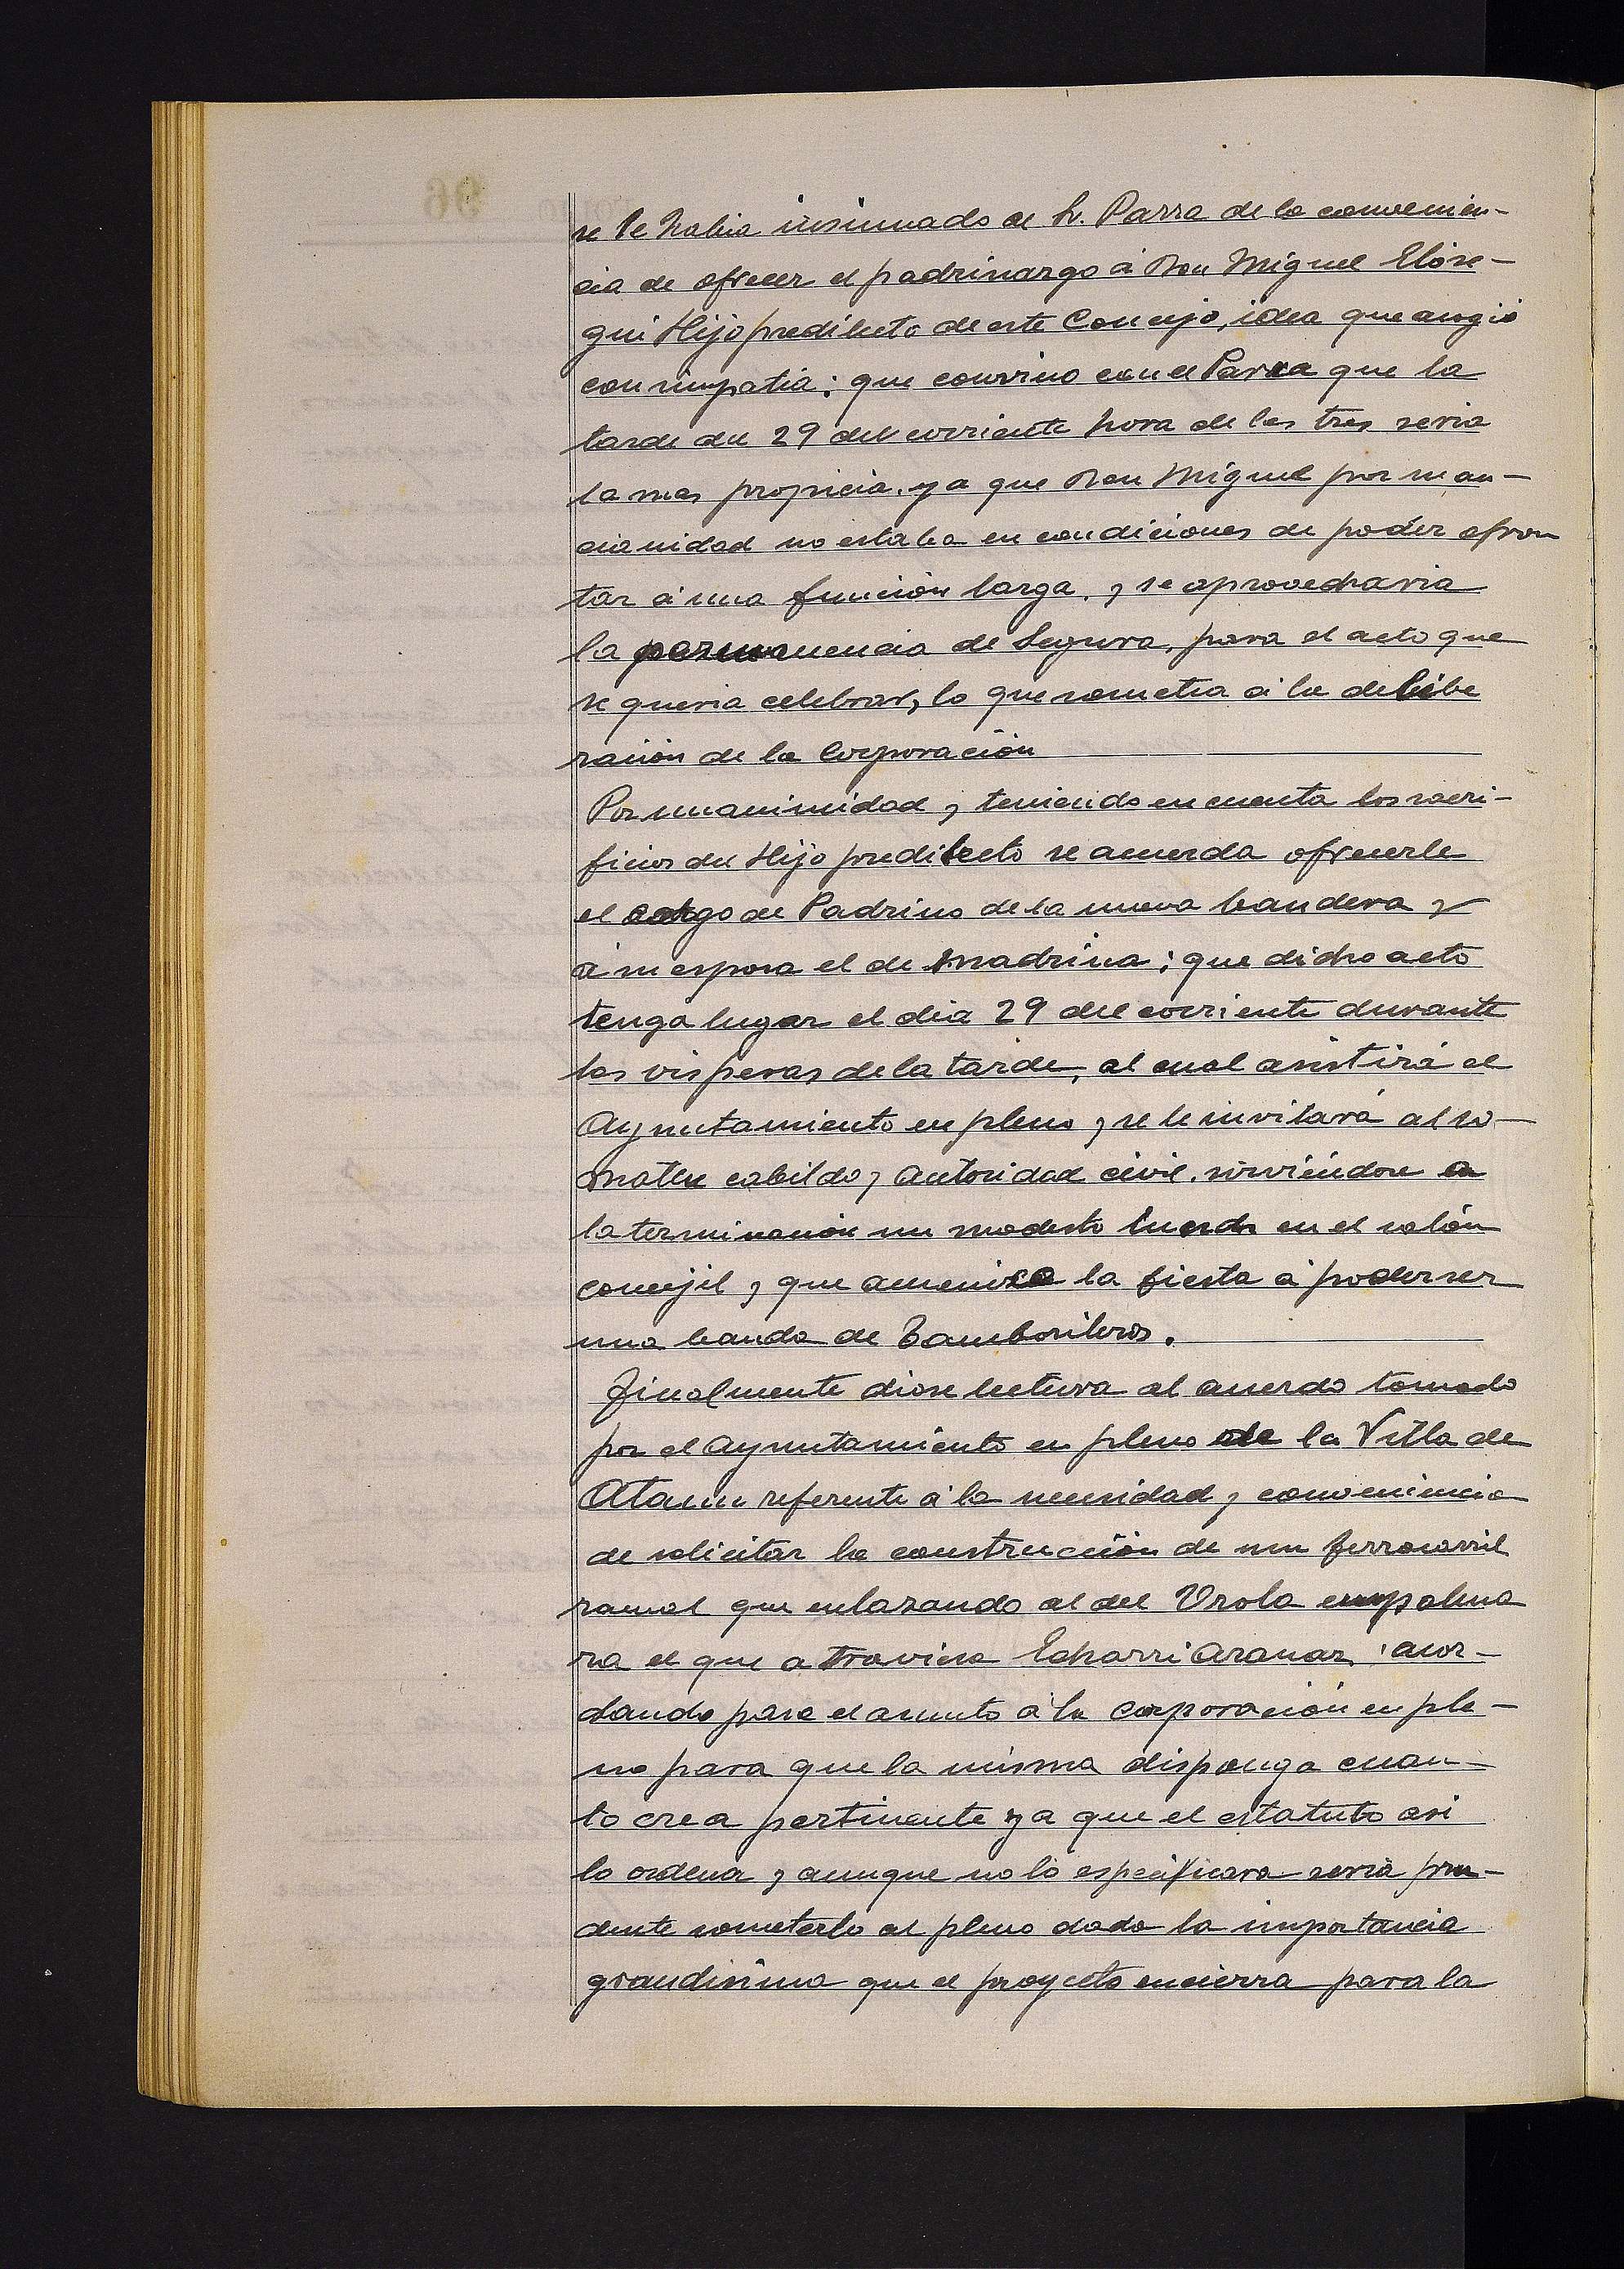 se le habia insinuado al Sr. Parra de la convenien-
cia de ofrecer el padrinazgo á Don Miguel Elóse-
gui Hijo predilecto de este Concejo, idea que acogió
con simpatia; que convino con el Parra que la
tarde del 29 del corriente hora de las tres seria
la mas propicia, ya que Don Miguel por su an-
cianidad no estaba en condiciones de poder afron
tar á una función larga, y se aprovecharia
la permanencia de Segura, para el acto que
se queria celebrar, lo que sometia á la delibe
ración de la Corporación
Por unanimidad y teniendo en cuenta los sacri-
ficios del Hijo predilecto se acuerda ofrecerle
el cargo de Padrino de la nueva bandera y
á su esposa el de madrina; que dicho acto
tenga lugar el dia 29 del corriente durante
las visperas de la tarde, al cual asistirá el
Ayuntamiento en pleno y se le invitará al so-
matén cabildo y autoridad civil, sirviéndose a
la terminación un modesto lunch en el salón
concejil y que amenice la fiesta á poder ser
una banda de Tamborileros.
Finalmente diose lectura al acuerdo tomado
por el Ayuntamiento en pleno de la Villa de
Ataun referente á la necesidad y conveniencia
de solicitar la construcción de un ferrocarril
ramal que enlazando al del Urola empalma
ra el que atraviesa Echarri Aranaz; acor-
dando pase el asunto á la corporación en ple-
no para que la misma disponga cuan-
to crea pertinente ya que el estatuto asi
lo ordena y aunque no lo especificara seria pru-
dente someterlo al pleno dada la importancia
grandisima que el proyecto encierra para la